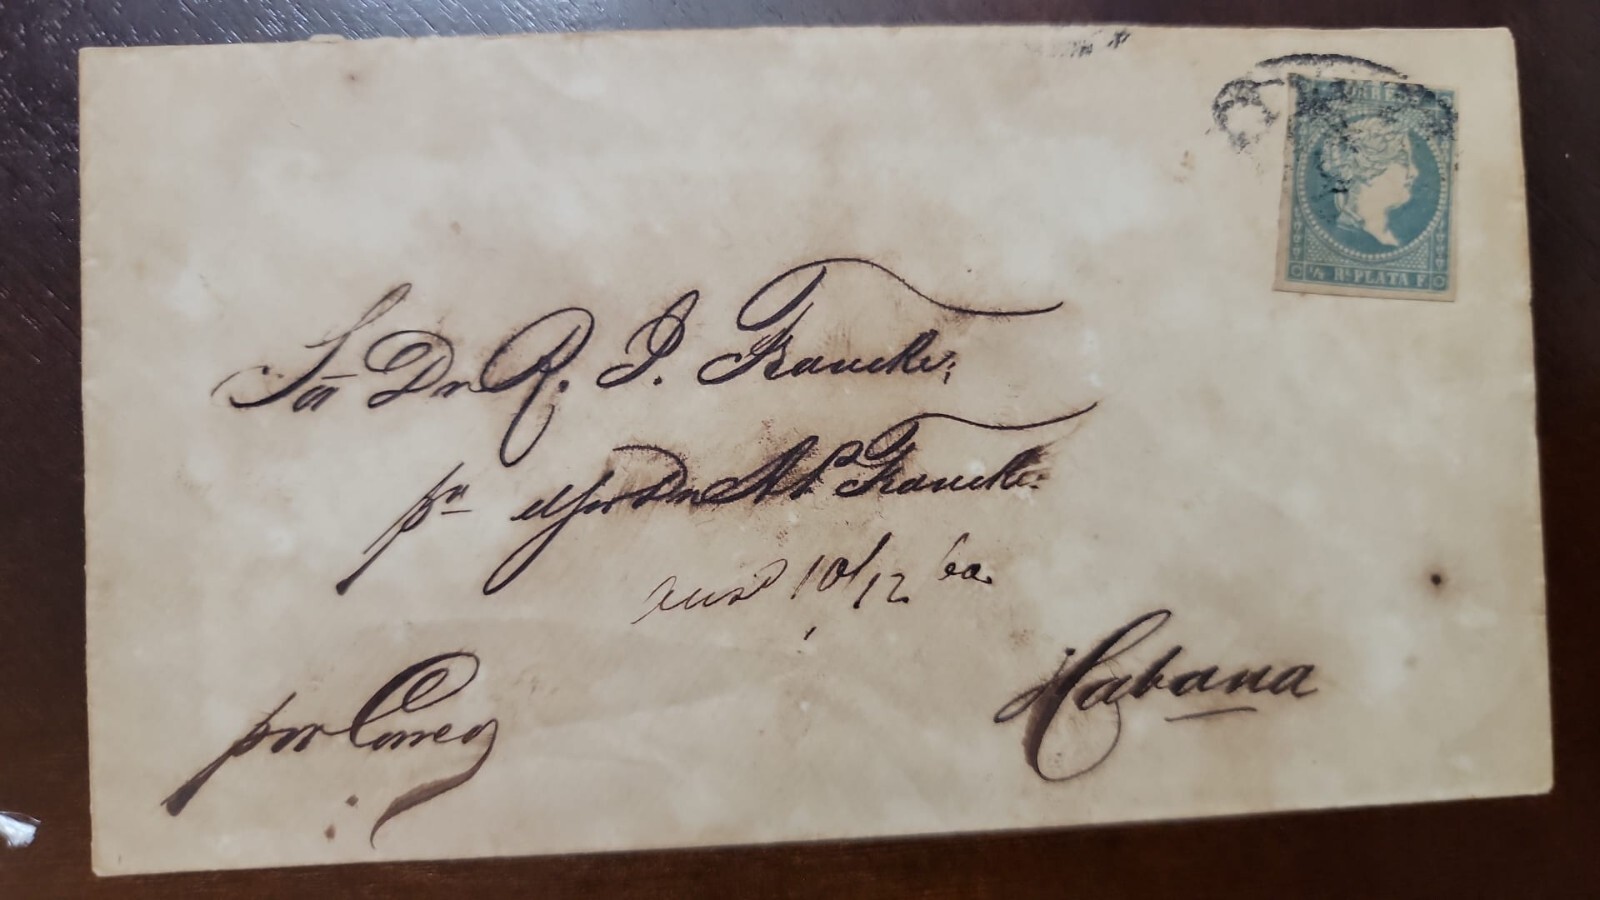 CORRE
1/2 Rl PLATA F.
Sa Dn R. J. Francke,
pa el Sor Dn A. P. Francke.
10/12 60
por Correo
Habana